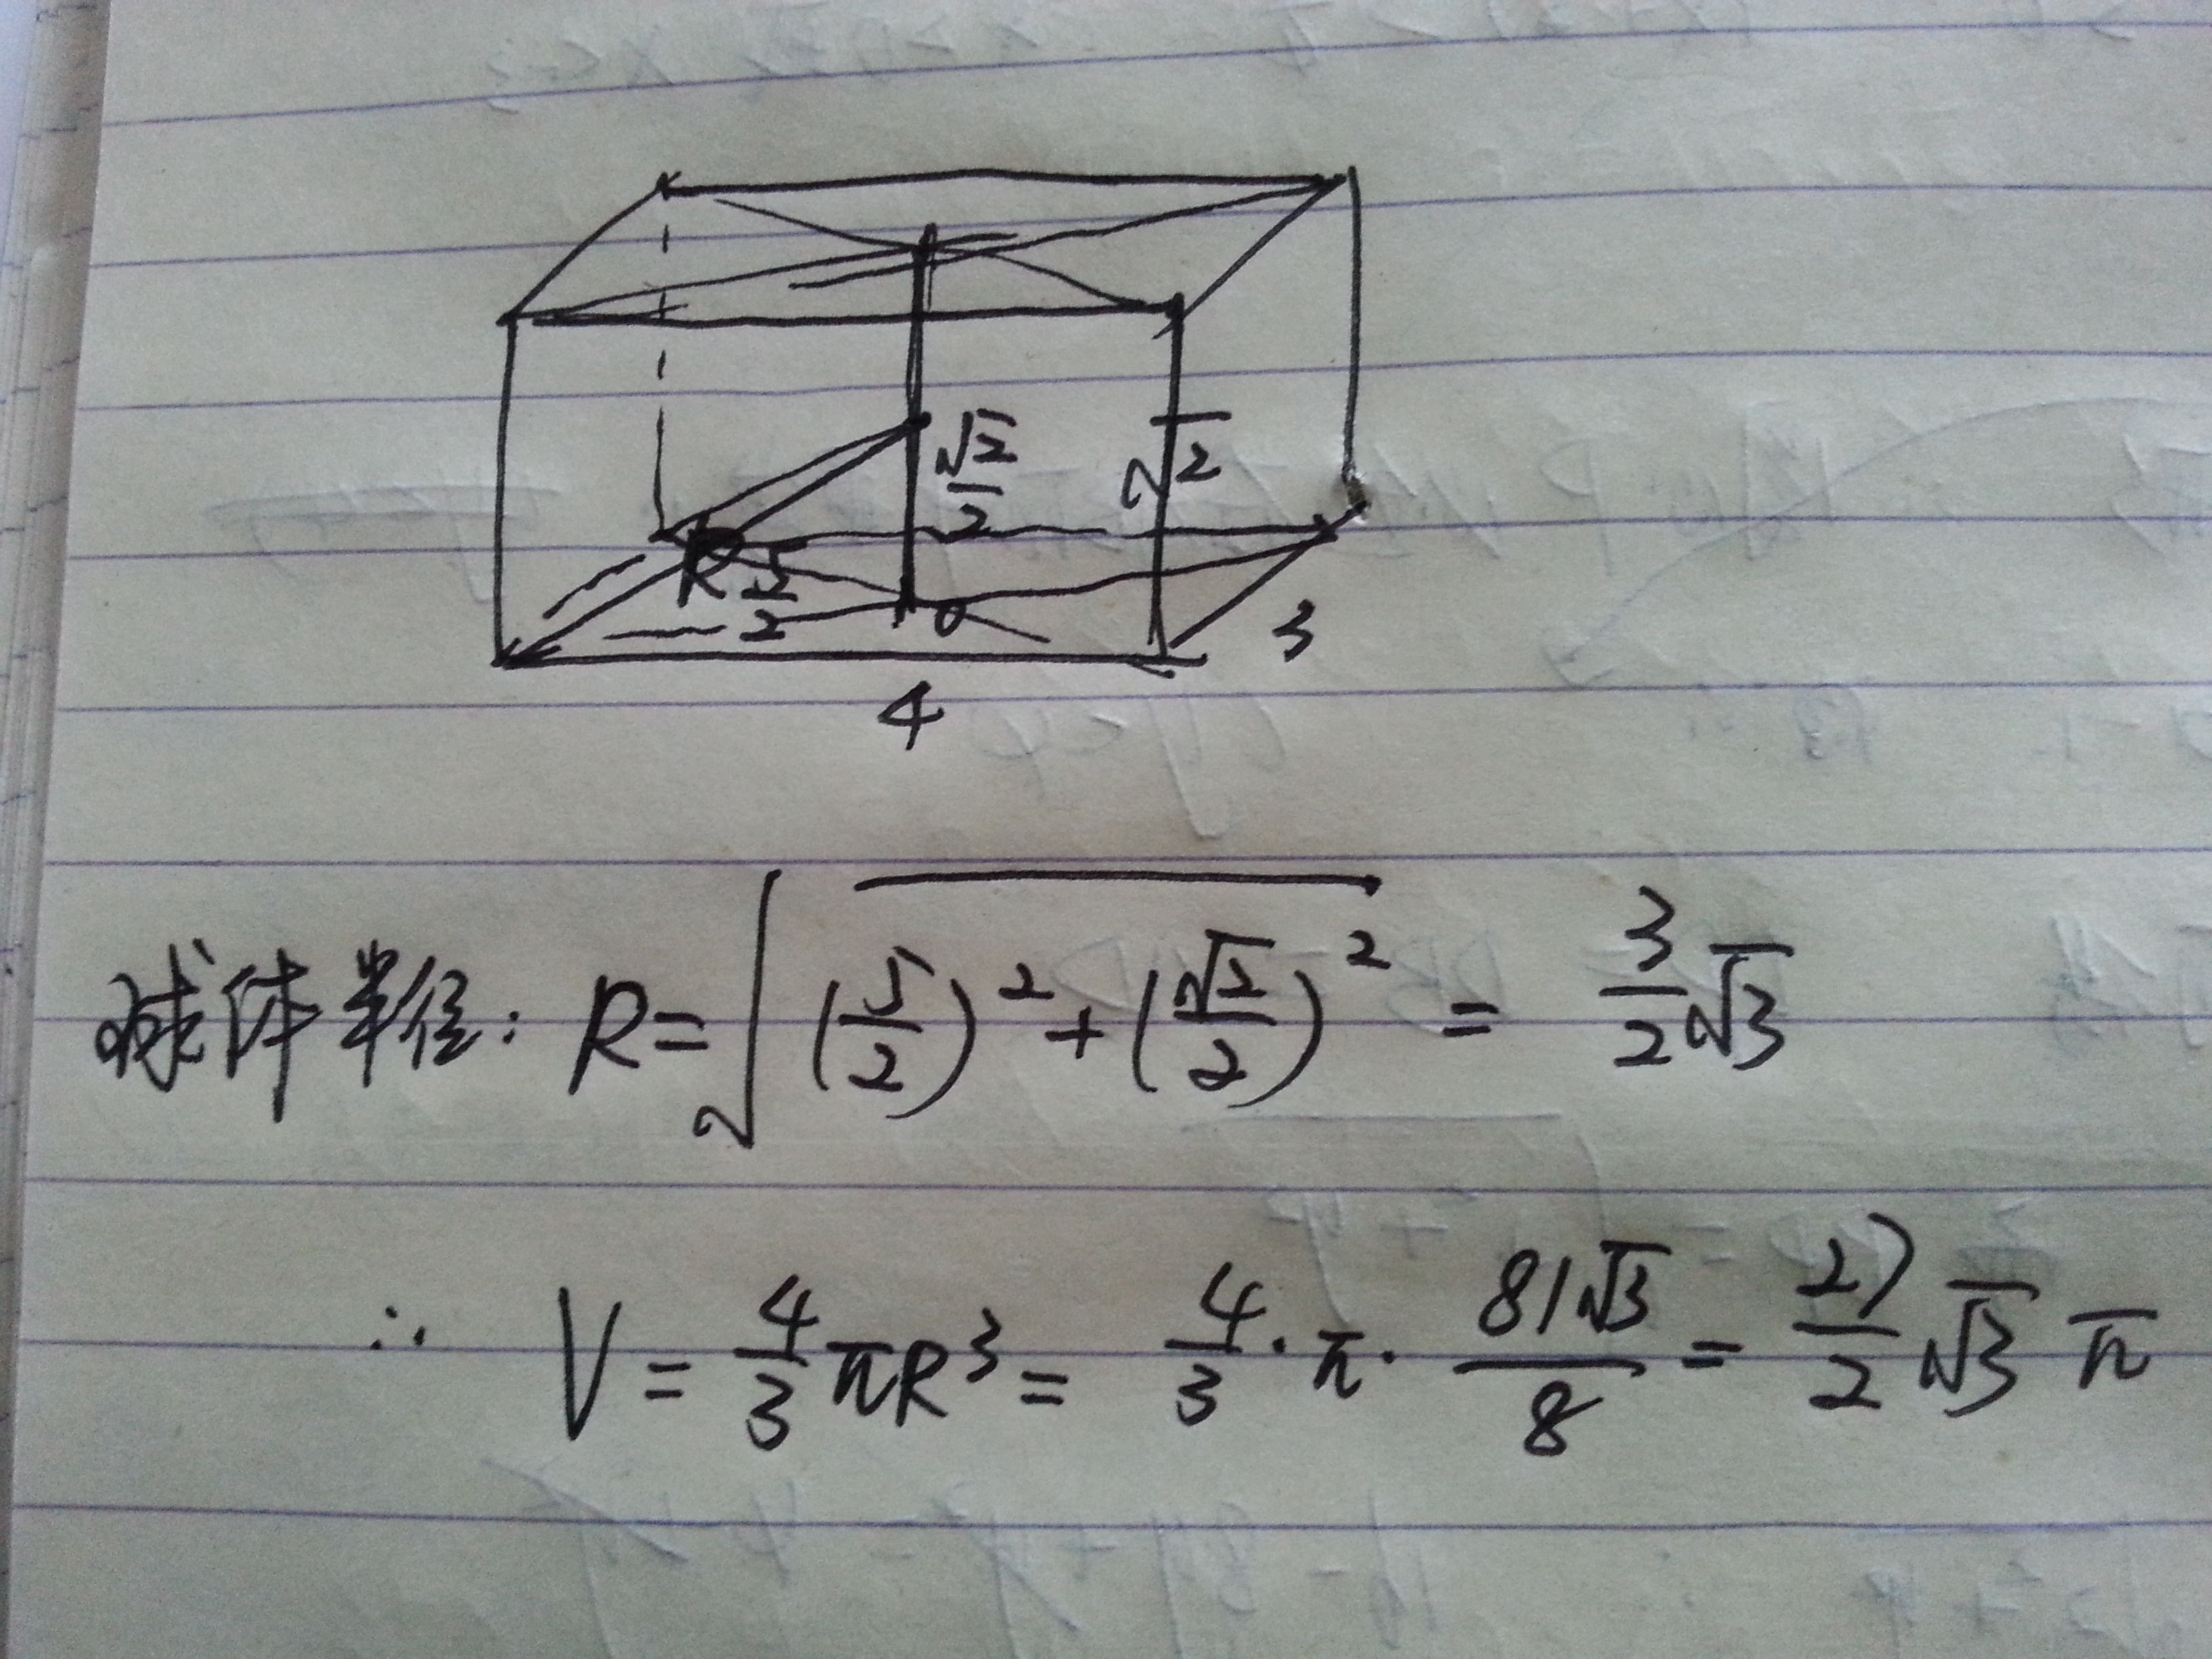 √2/2
√2
R
5/2
0
3
4
球体半径: R=√((5/2)²+(√2/2)²) = 3/2√3
∴ V = 4/3 πR³ = 4/3 · π · 81√3/8 = 27/2 √3 π